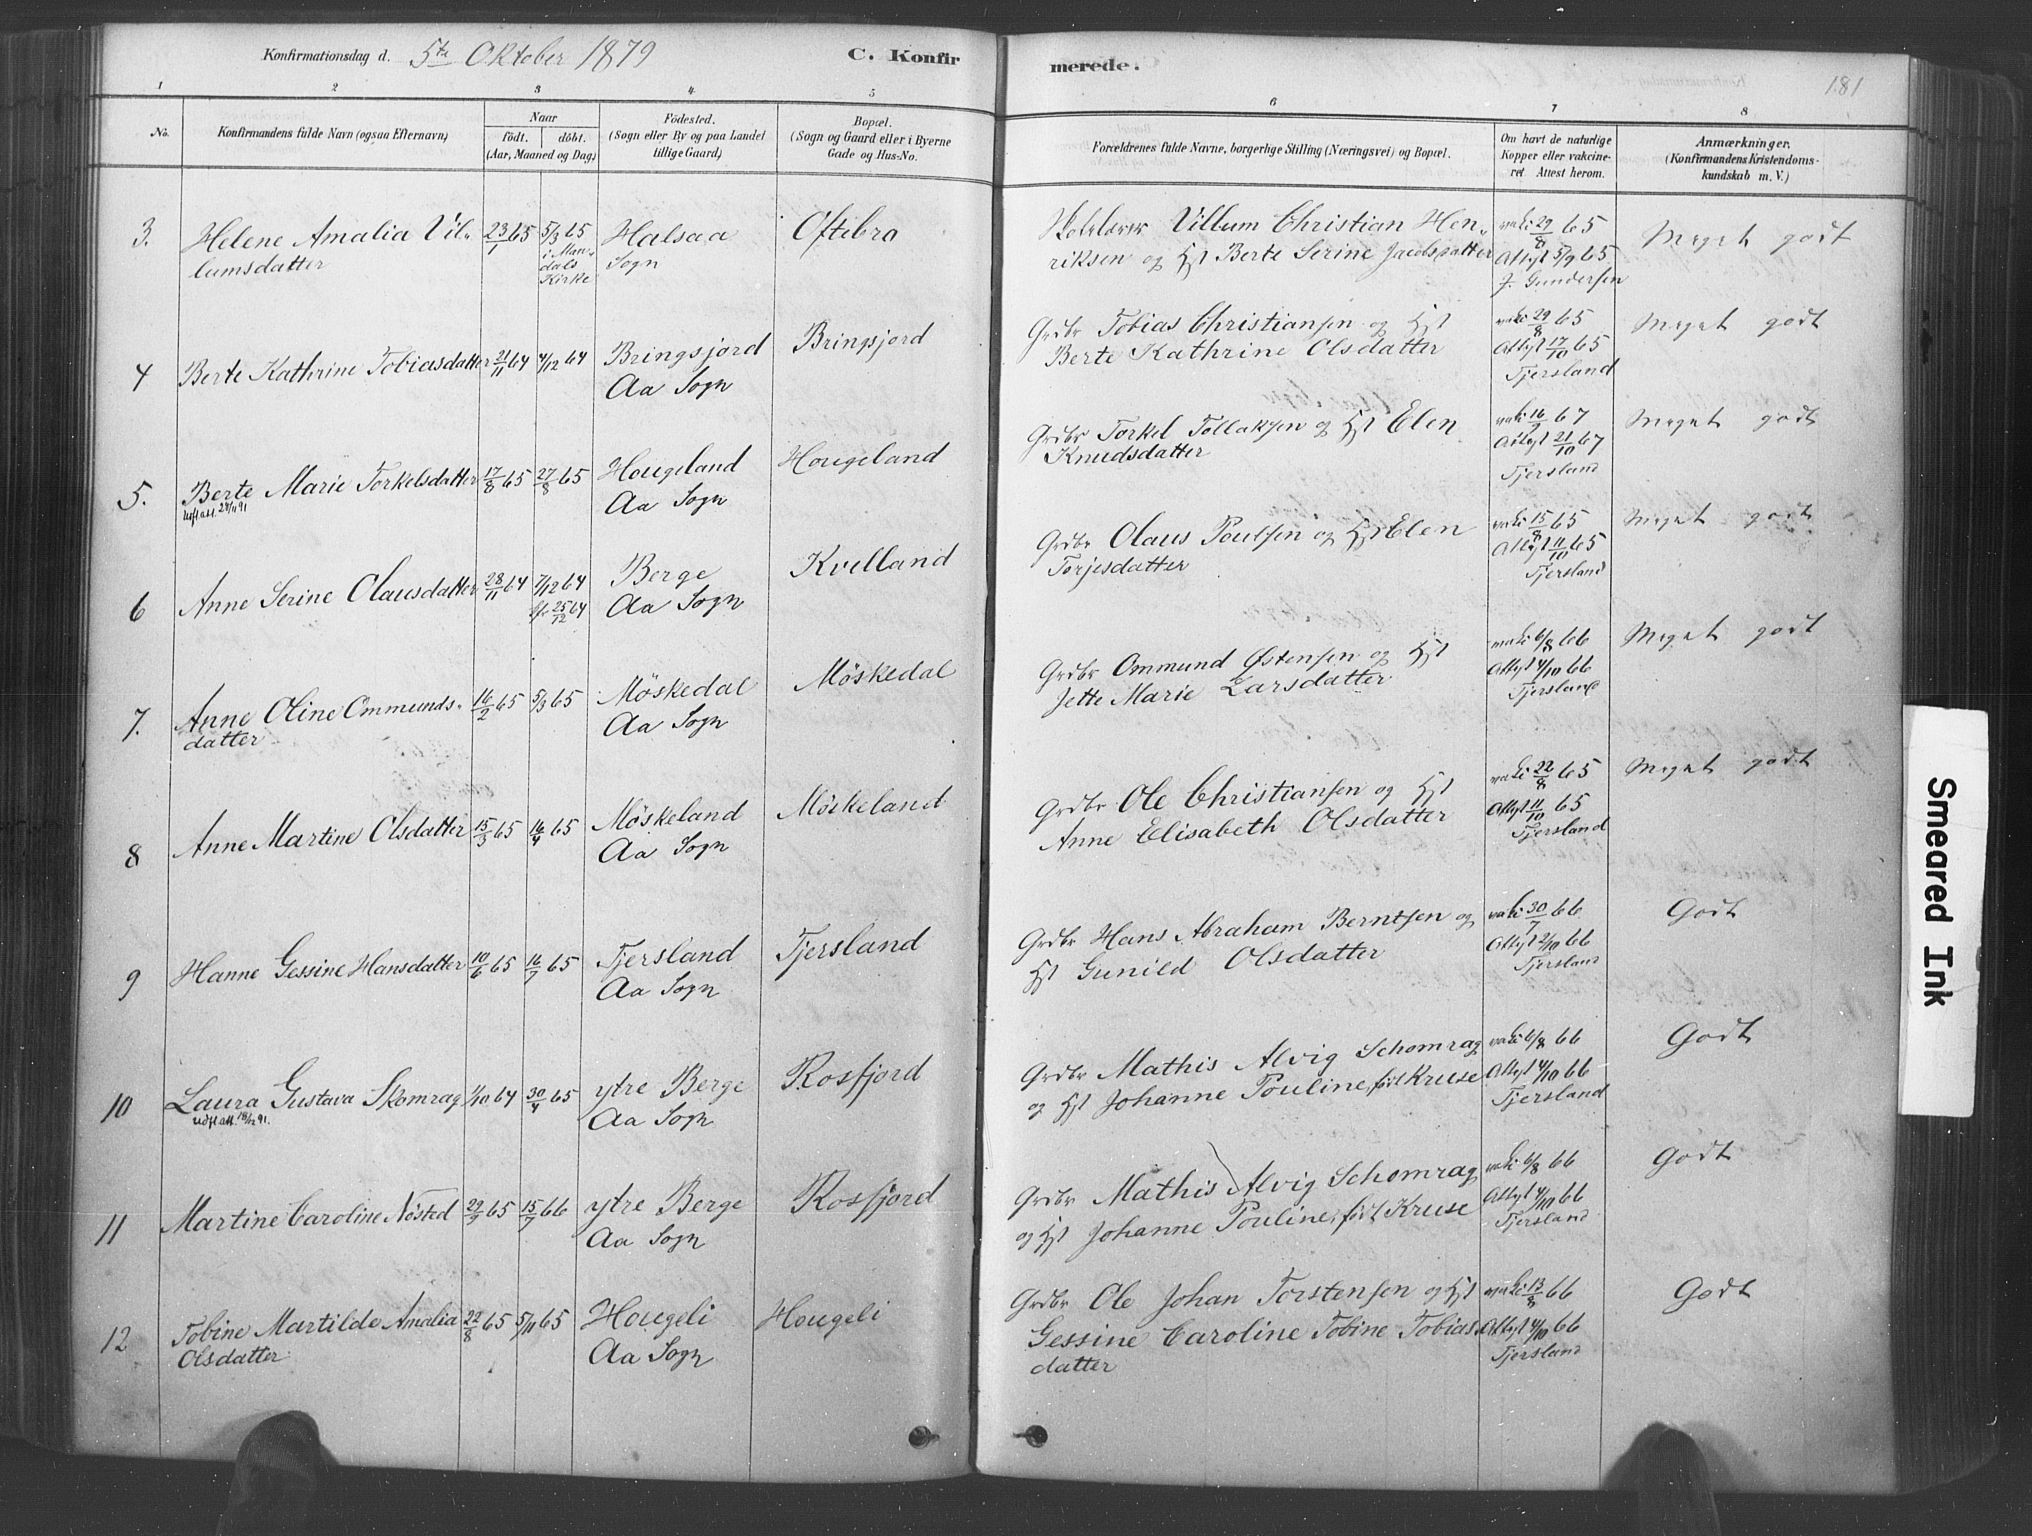 Konfirmationsdag d. 5te Oktober 1879
C. Konfirmerede.
181
1 2 3 4 5 6 7 8
No.
Konfirmandens fulde Navn (ogsaa Efternavn)
Naar
födt. döbt.
(Aar, Maaned og Dag)
Födested.
(Sogn eller By og paa Landet
tillige Gaard)
Bopæl.
(Sogn og Gaard eller i Byerne
Gade og Hus-No.
Forældrenes fulde Navne, borgerlige Stilling (Næringsvei) og Bopæl.
Om havt de naturlige
Kopper eller vakcine-
ret Attest herom.
Anmærkninger.
(Konfirmandens Kristendoms-
kundskab m. V.)
3. Helene Amalia Vil-
lumsdatter
23/1 65
5/3 65
i Man-
dals
Kirke
Halsaa
Sogn
Oftebro
Villum Christian Hen-
riksen og Hst Berte Serine Jacobsdatter
vaki 29/8 65
Attest 5/9 65
J. Gundersen
Meget godt
4 Berte Kathrine Tobiasdatter 21/11 64 4/12 64
Bringsjord
Aa Sogn
Bringsjord
Grdbr Tobias Christiansen og Hst
Berte Kathrine Olsdatter
vaki 29/8 65
Attest 17/10 65
Tjersland
Meget godt
5. Berte Marie Torkelsdatter 17/8 65 27/8 65
Udfl att. 24/11 91
Hougeland
Aa Sogn
Hougeland
Grdbr Torkel Tollaksen og Hst Elen
Knudsdatter
vaki 16/9 67
Attest 21/10 67
Tjersland
Meget godt
6 Anne Serine Olausdatter 28/11 64 7/12 64
25/12 64
Berge
Aa Sogn
Kvilland
Grdbr Olaus Poulsen og Hst Elen
Torjesdatter
vaki 15/8 65
Attest 11/10 65
Tjersland
Meget godt
7. Anne Oline Ommunds-
datter
16/2 65 5/3 65
Möskedal
Aa Sogn
Möskedal
Grdbr Ommund Østensen og Hst
Jette Marie Larsdatter
vaki 6/8 66
Attest 4/10 66
Tjersland
Meget godt
8 Anne Martine Olsdatter 15/3 65 16/4 65
Möskeland
Aa Sogn
Möskeland
Grdbr Ole Christiansen og Hst
Anne Elisabeth Olsdatter
vaki 22/8 65
Attest 11/10 65
Tjersland
Meget godt
9 Hanne Gessine Hansdatter 10/6 65 16/7 65
Tjersland
Aa Sogn
Tjersland
Grdbr Hans Abraham Berntsen og
Hst Gunild Olsdatter
vaki 30/7 66
Attest 2/10 66
Tjersland
Godt
10 Laura Gustava Skomrag 1/10 64 30/4 65
Udfl att. 18/12 91.
ytre Berge
Aa Sogn
Rosfjord
Grdbr Mathis Alvig Schomrag
og Hst Johanne Pouline, födt Kruse
vaki 6/8 66
Attest 4/10 66
Tjersland
Godt
11 Martine Caroline Nösted 29/9 65 15/7 66
ytre Berge
Aa Sogn
Rosfjord
Grdbr Mathis Alvig Schomrag
og Hst Johanne Pouline, födt Kruse
vaki 6/8 66
Attest 4/10 66
Tjersland
Godt
12 Tobine Martilde Amalia
Olsdatter
22/8 65 5/11 65
Hougeli
Aa Sogn
Hougeli
Grdbr Ole Johan Torstensen og Hst
Gessine Caroline Tobine Tobias-
datter
vaki 13/8 66
Attest 4/10 66
Tjersland
Godt
Smeared Ink